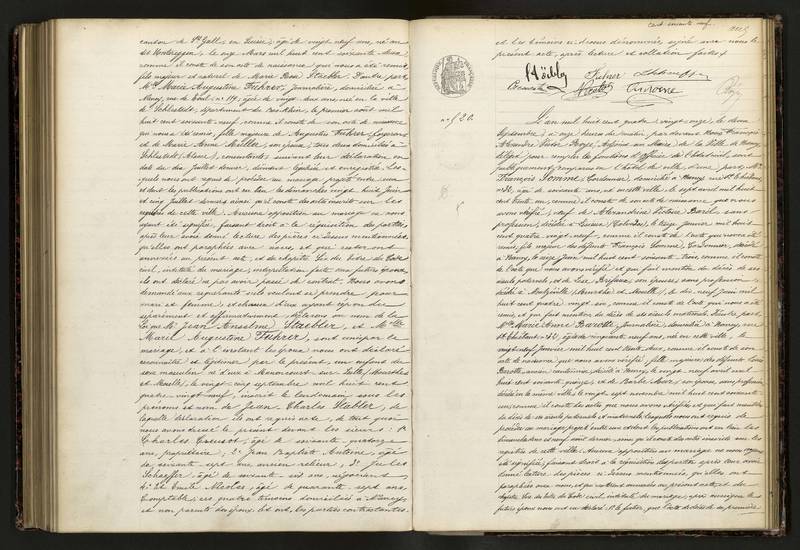 canton de St Gall, en Suisse, âgé de vingt neuf ans, né au
dit Montreggon, le onze Mars mil huit cent soixante deux
comme il conste de son acte de naissance qui nous a été remis,
fils majeur et naturel de Marie Rose Staebler. D'autre part,
Mlle Marie Augustine Fuhrer, Journalière, domiciliée à
Nancy, rue de 119, âgée de vingt deux ans, née en la ville
de Schlestadt, département du Bas Rhin, le premier août mil
huit cent soixante neuf, comme il conste de son acte de naissance
qui nous a été remis, fille majeure de Augustin Fuhrer
et de Marie Anne Meiller, son épouse, tous deux domiciliés à
Schlestadt, Alsace, consentants suivant leur déclaration en
date du dix Juillet dernier, dûment légalisée et enregistrée. Les
quels nous ont requis de procéder au mariage projeté entre eux
et dont les publications ont eu lieu les dimanches vingt huit Juin
et cinq Juillet derniers ainsi qu'il conste des actes inscrits sur les
registres de cette ville. Aucune opposition au mariage ne nous
ayant été signifiée, faisant droit à la réquisition des parties,
après leur avoir donné lecture des pièces ci dessus mentionnées
qu'elles ont paraphées avec nous, et qui resteront
annexées au présent acte, et du chapitre six du titre du Code
civil, intitulé du mariage; interpellation faite aux futurs époux,
ils ont déclaré ne pas avoir passé de contrat. Nous avons
demandé aux requérants s'ils veulent se prendre pour
mari et femme, et chacun d'eux ayant répondu
séparément et affirmativement, déclarons au nom de la
loi que Mr Jean Anselme Staebler, et Mlle
Marie Augustine Fuhrer, sont unis par le
mariage, et à l'instant les époux nous ont déclaré
reconnaître et légitimer par le présent un enfant du
sexe masculin né d'eux à Manoncourt sur Seille (Meurthe
et Moselle), le vingt cinq septembre mil huit cent
quatre vingt neuf, inscrit le lendemain sous les
prénoms et nom de Jean Charles Stabler, de
laquelle déclaration ils ont requis acte; de tout quoi
nous avons dressé le présent devant les sieurs: 1º
Charles Creusot, âgé de soixante quatorze
ans, propriétaire; 2º Jean Baptiste Antoine, âgé
de soixante sept ans, ancien relieur; 3º Jules
Schaeffer, âgé de soixante six ans, négociant
4º et Emile Nicolas, âgé de quarante sept ans,
Comptable; ces quatre témoins domiciliés à Nancy,
et non parents des époux; et ont, les parties contractantes
cent soixante neuf.
et les témoins ci-dessus dénommés, signé avec nous le
présent acte, après lecture et collation faites.
Fuhrer
nº 520.
L'an mil huit cent quatre vingt onze, le deux
Septembre, à onze heures du matin, par devant Nous François
Alexandre Victor Boyé, Adjoint au Maire de la Ville de Nancy,
délégué pour remplir les fonctions d'officier de l'état civil, sont
publiquement comparus en l'hôtel de ville, d'une part, Mr
François Lommé, Cordonnier, domicilié à Nancy, rue St Thiébaut,
nº 42, âgé de soixante ans, né en cette ville le sept avril mil huit
cent trente un, comme il conste de son acte de naissance que nous
avons vérifié; veuf de Alexandrine Victoire Barel, sans
profession, décédée à Lisieux (Calvados), le treize janvier mil huit
cent quatre vingt sept, comme il conste de l'acte qui nous a été
remis, fils majeur des défunts François Lommé, Cordonnier, décédé
à Nancy, le seize Juin mil huit cent soixante trois, comme il conste
de l'acte que nous avons vérifié et qui fait mention du décès de ses
aïeuls paternels, et de Lise Brifaux, son épouse, sans profession
décédée à Maxéville (Meurthe et Moselle), le dix neuf Juin mil
huit cent quatre vingt un, comme il conste de l'acte qui nous a été
remis, et qui fait mention du décès de ses aïeuls maternels. D'autre part,
Mlle Marie Anne Barotte, Journalière, domiciliée à Nancy, rue
St Thiébaut nº 42, âgée de cinquante neuf ans, née en cette ville, le
vingt neuf Janvier mil huit cent trente deux, comme il conste de son
acte de naissance que nous avons vérifié; fille majeure des défunts Louis
Barotte, ancien cantinier, décédé à Nancy, le vingt neuf avril mil
huit cent soixante quinze, et de Barbe, son épouse, sans profession,
décédée en la même ville, le vingt sept novembre mil huit cent soixante
un, comme il conste des actes que nous avons vérifiés et qui font mention
du décès de ses aïeuls paternels et maternels. Lesquels nous ont requis de
procéder au mariage projeté entre eux et dont les publications ont eu lieu les
dimanches et neuf août dernier, ainsi qu'il conste des actes inscrits sur les
registres de cette ville. Aucune opposition au mariage ne nous ayant
été signifiée, faisant droit à la réquisition des parties, après leur avoir
donné lecture des pièces ci dessus mentionnées, qu'elles ont
paraphées avec nous, et qui resteront annexées au présent acte, et du
chapitre six du titre du Code civil, intitulé du mariage; après quoi, les
futurs époux nous ont déclaré: 1º le futur, que l'acte de décès de sa première